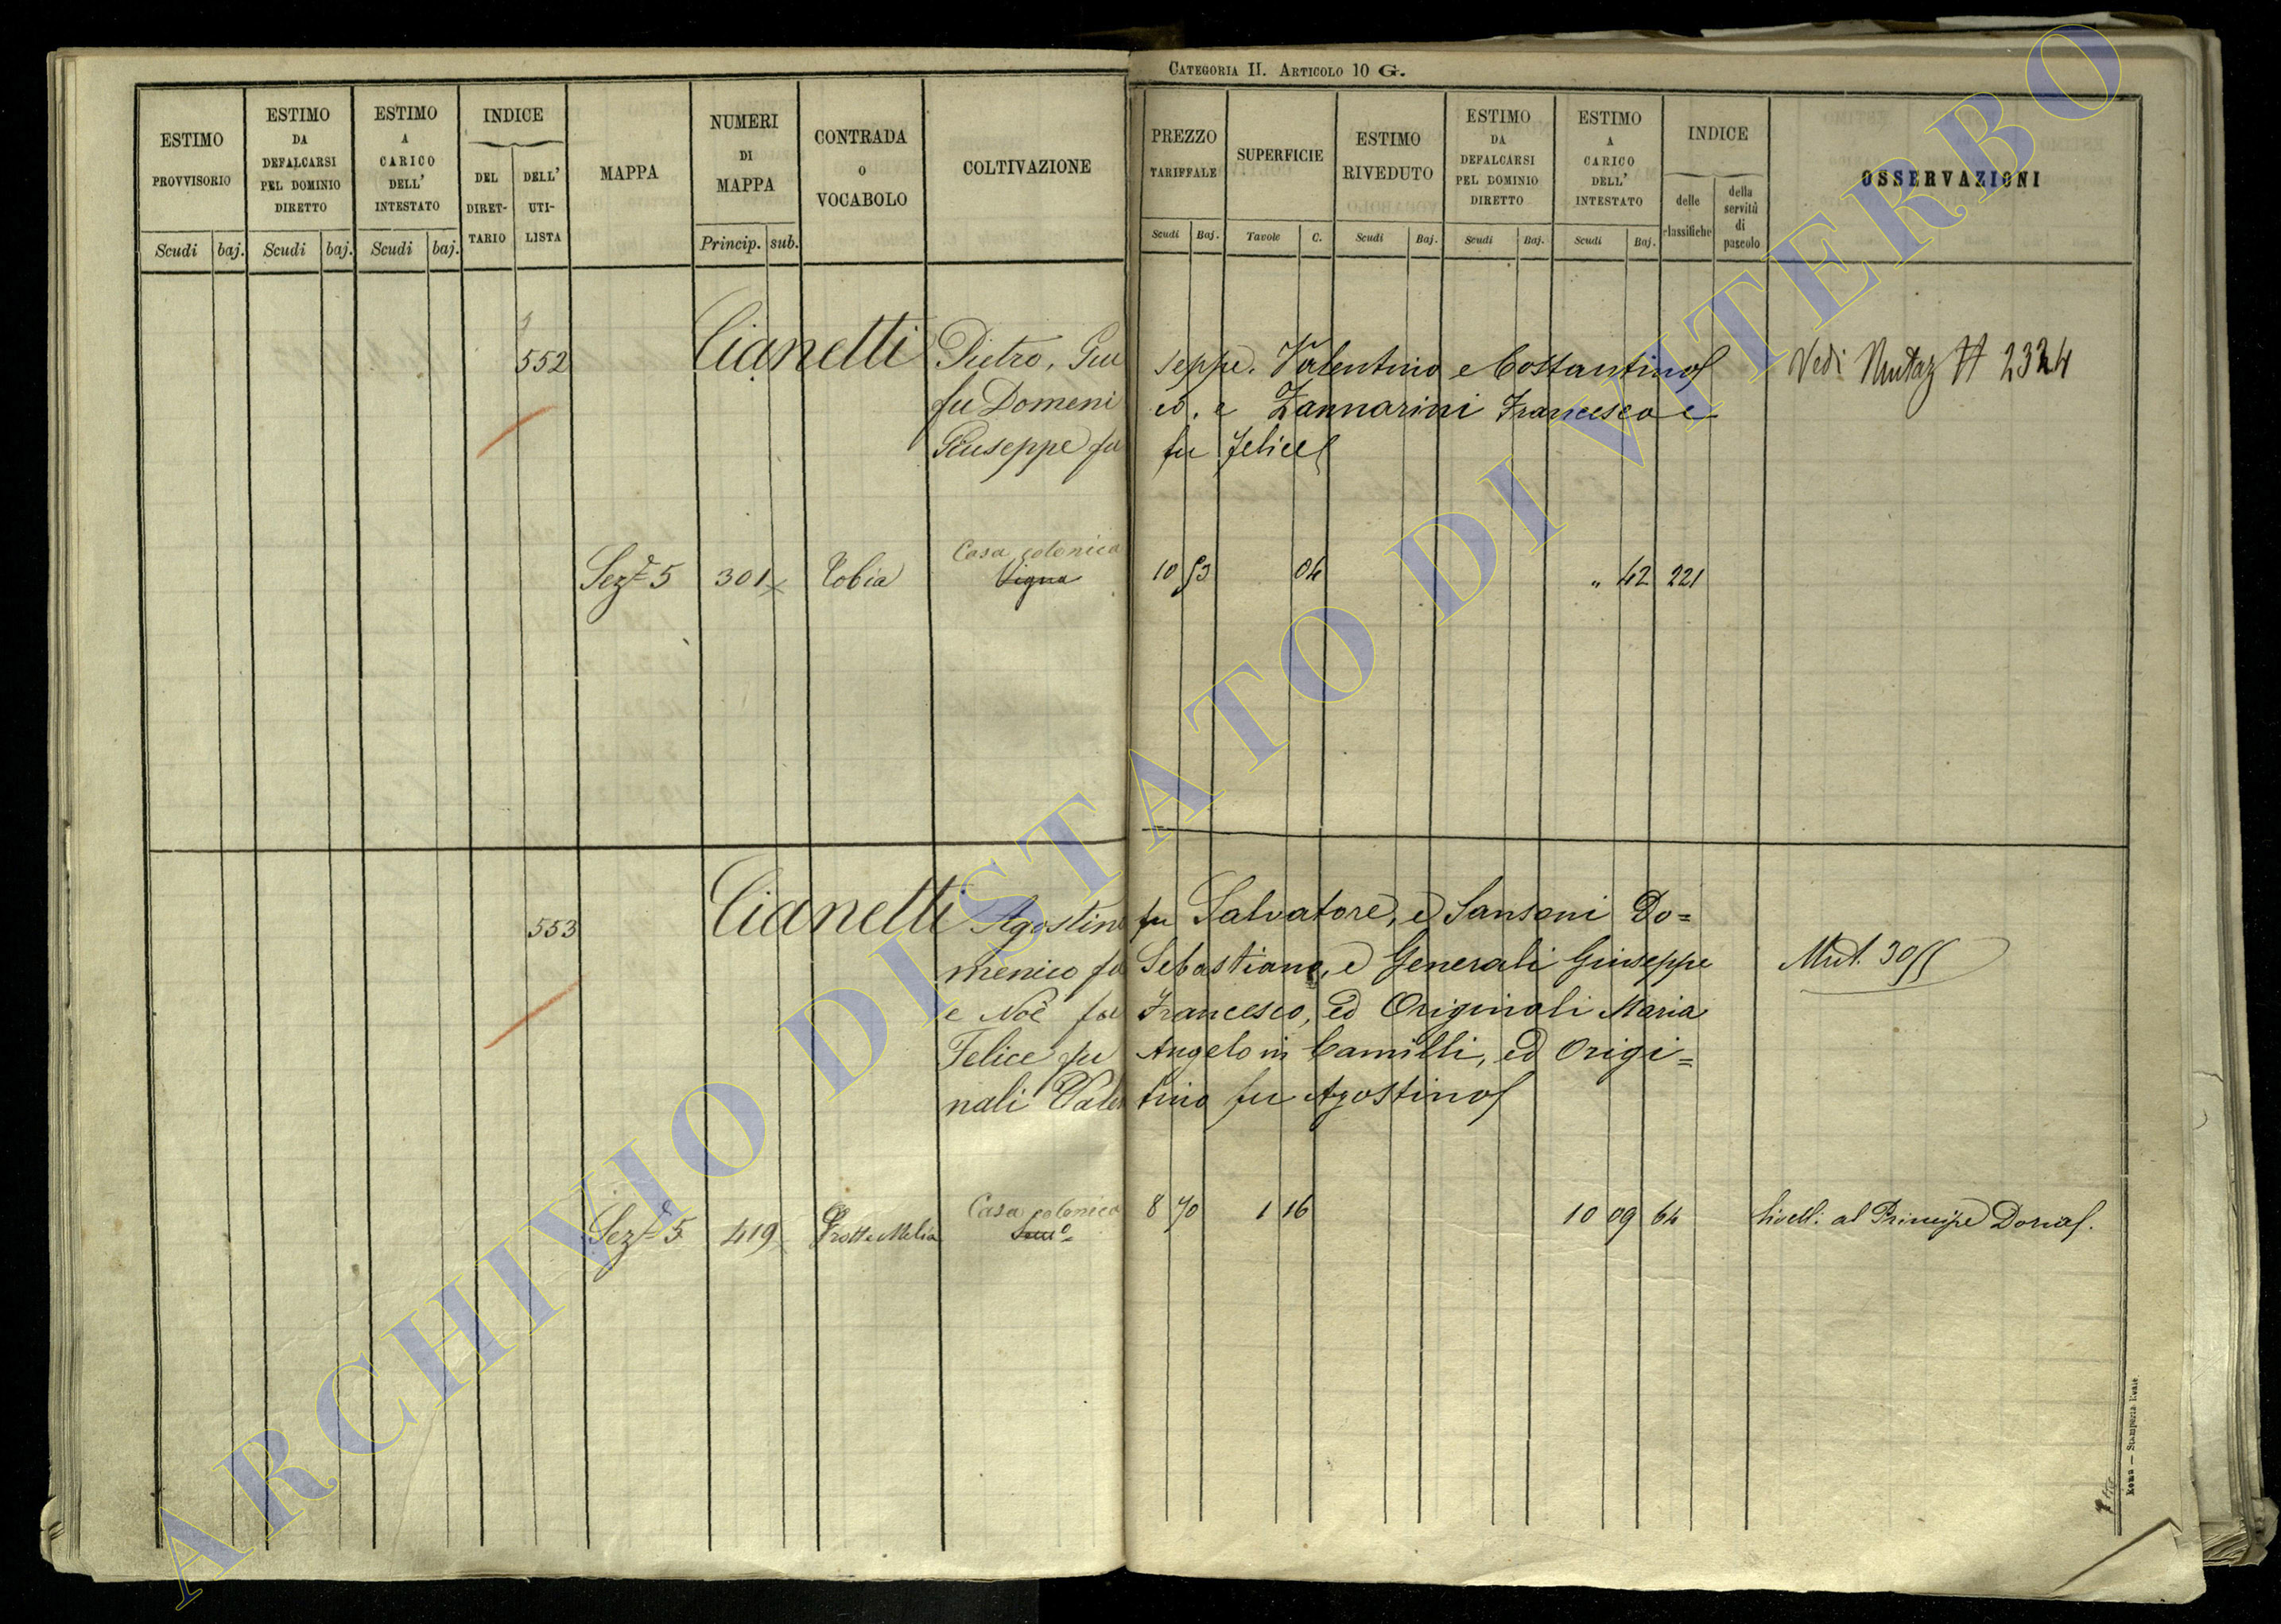 CATEGORIA II. ARTICOLO 10 G.
ESTIMO PROVVISORIO
Scudi baj.
ESTIMO DA DEFALCARSI PEL DOMINIO DIRETTO
Scudi baj.
ESTIMO A CARICO DELL' INTESTATO
Scudi baj.
INDICE
DEL DIRET-TARIO
DELL' UTI-LISTA
MAPPA
NUMERI DI MAPPA
Princip. sub.
CONTRADA O VOCABOLO
COLTIVAZIONE
PREZZO TARIFFALE
Scudi Baj.
SUPERFICIE
Tavole C.
ESTIMO RIVEDUTO
Scudi Baj.
ESTIMO DA DEFALCARSI PEL DOMINIO DIRETTO
Scudi Baj.
ESTIMO A CARICO DELL' INTESTATO
Scudi Baj.
INDICE
delle classifiche
della servitù di pascolo
OSSERVAZIONI
552 Cianetti Pietro, Giu seppe. Valentino e Costantino Vedi Mutaz N 2324
fu Domeni co. e Zannarini Francesco e
Giuseppe fu fu Felice
Casa colonica
Sez.e 5 301 Tobia Vigna 10 53 04 " 42 221
553 Cianetti Agostino fu Salvatore, e Sansoni Do=
menico fu Sebastiano, e Generali Giuseppe Mut. 3055
e Noè fu Francesco, ed Originali Maria
Felice fu Angelo in Camilli, ed Origi=
nali Valen tino fu Agostino
Casa colonica
Sez.e 5 419 Grotte Melia 8 70 1 16 10 09 64 Livell: al Principe Doria.
Roma — Stamperia Reale
ARCHIVIO DI STATO DI VITERBO